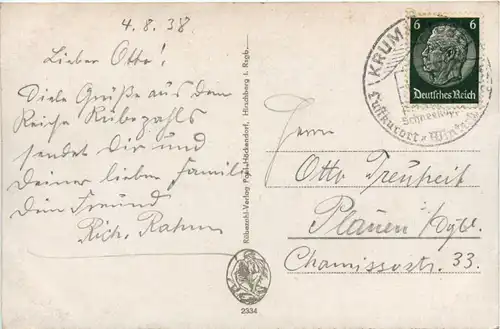 4.8.38
Lieber Otto!
Viele Grüße aus dem
Reiche Rübezahls
sendet Dir und
Deiner lieben Familie
Dein Freund
Rich. Rahm
Rübezahl-Verlag Paul Höckendorf, Hirschberg i. Rsgb.
2334
KRUM
Schneekoppe
Luftkurort
6 6
Deutsches Reich
Herrn
Otto Treuheit
Plauen /Vgtl.
Chamissostr. 33.